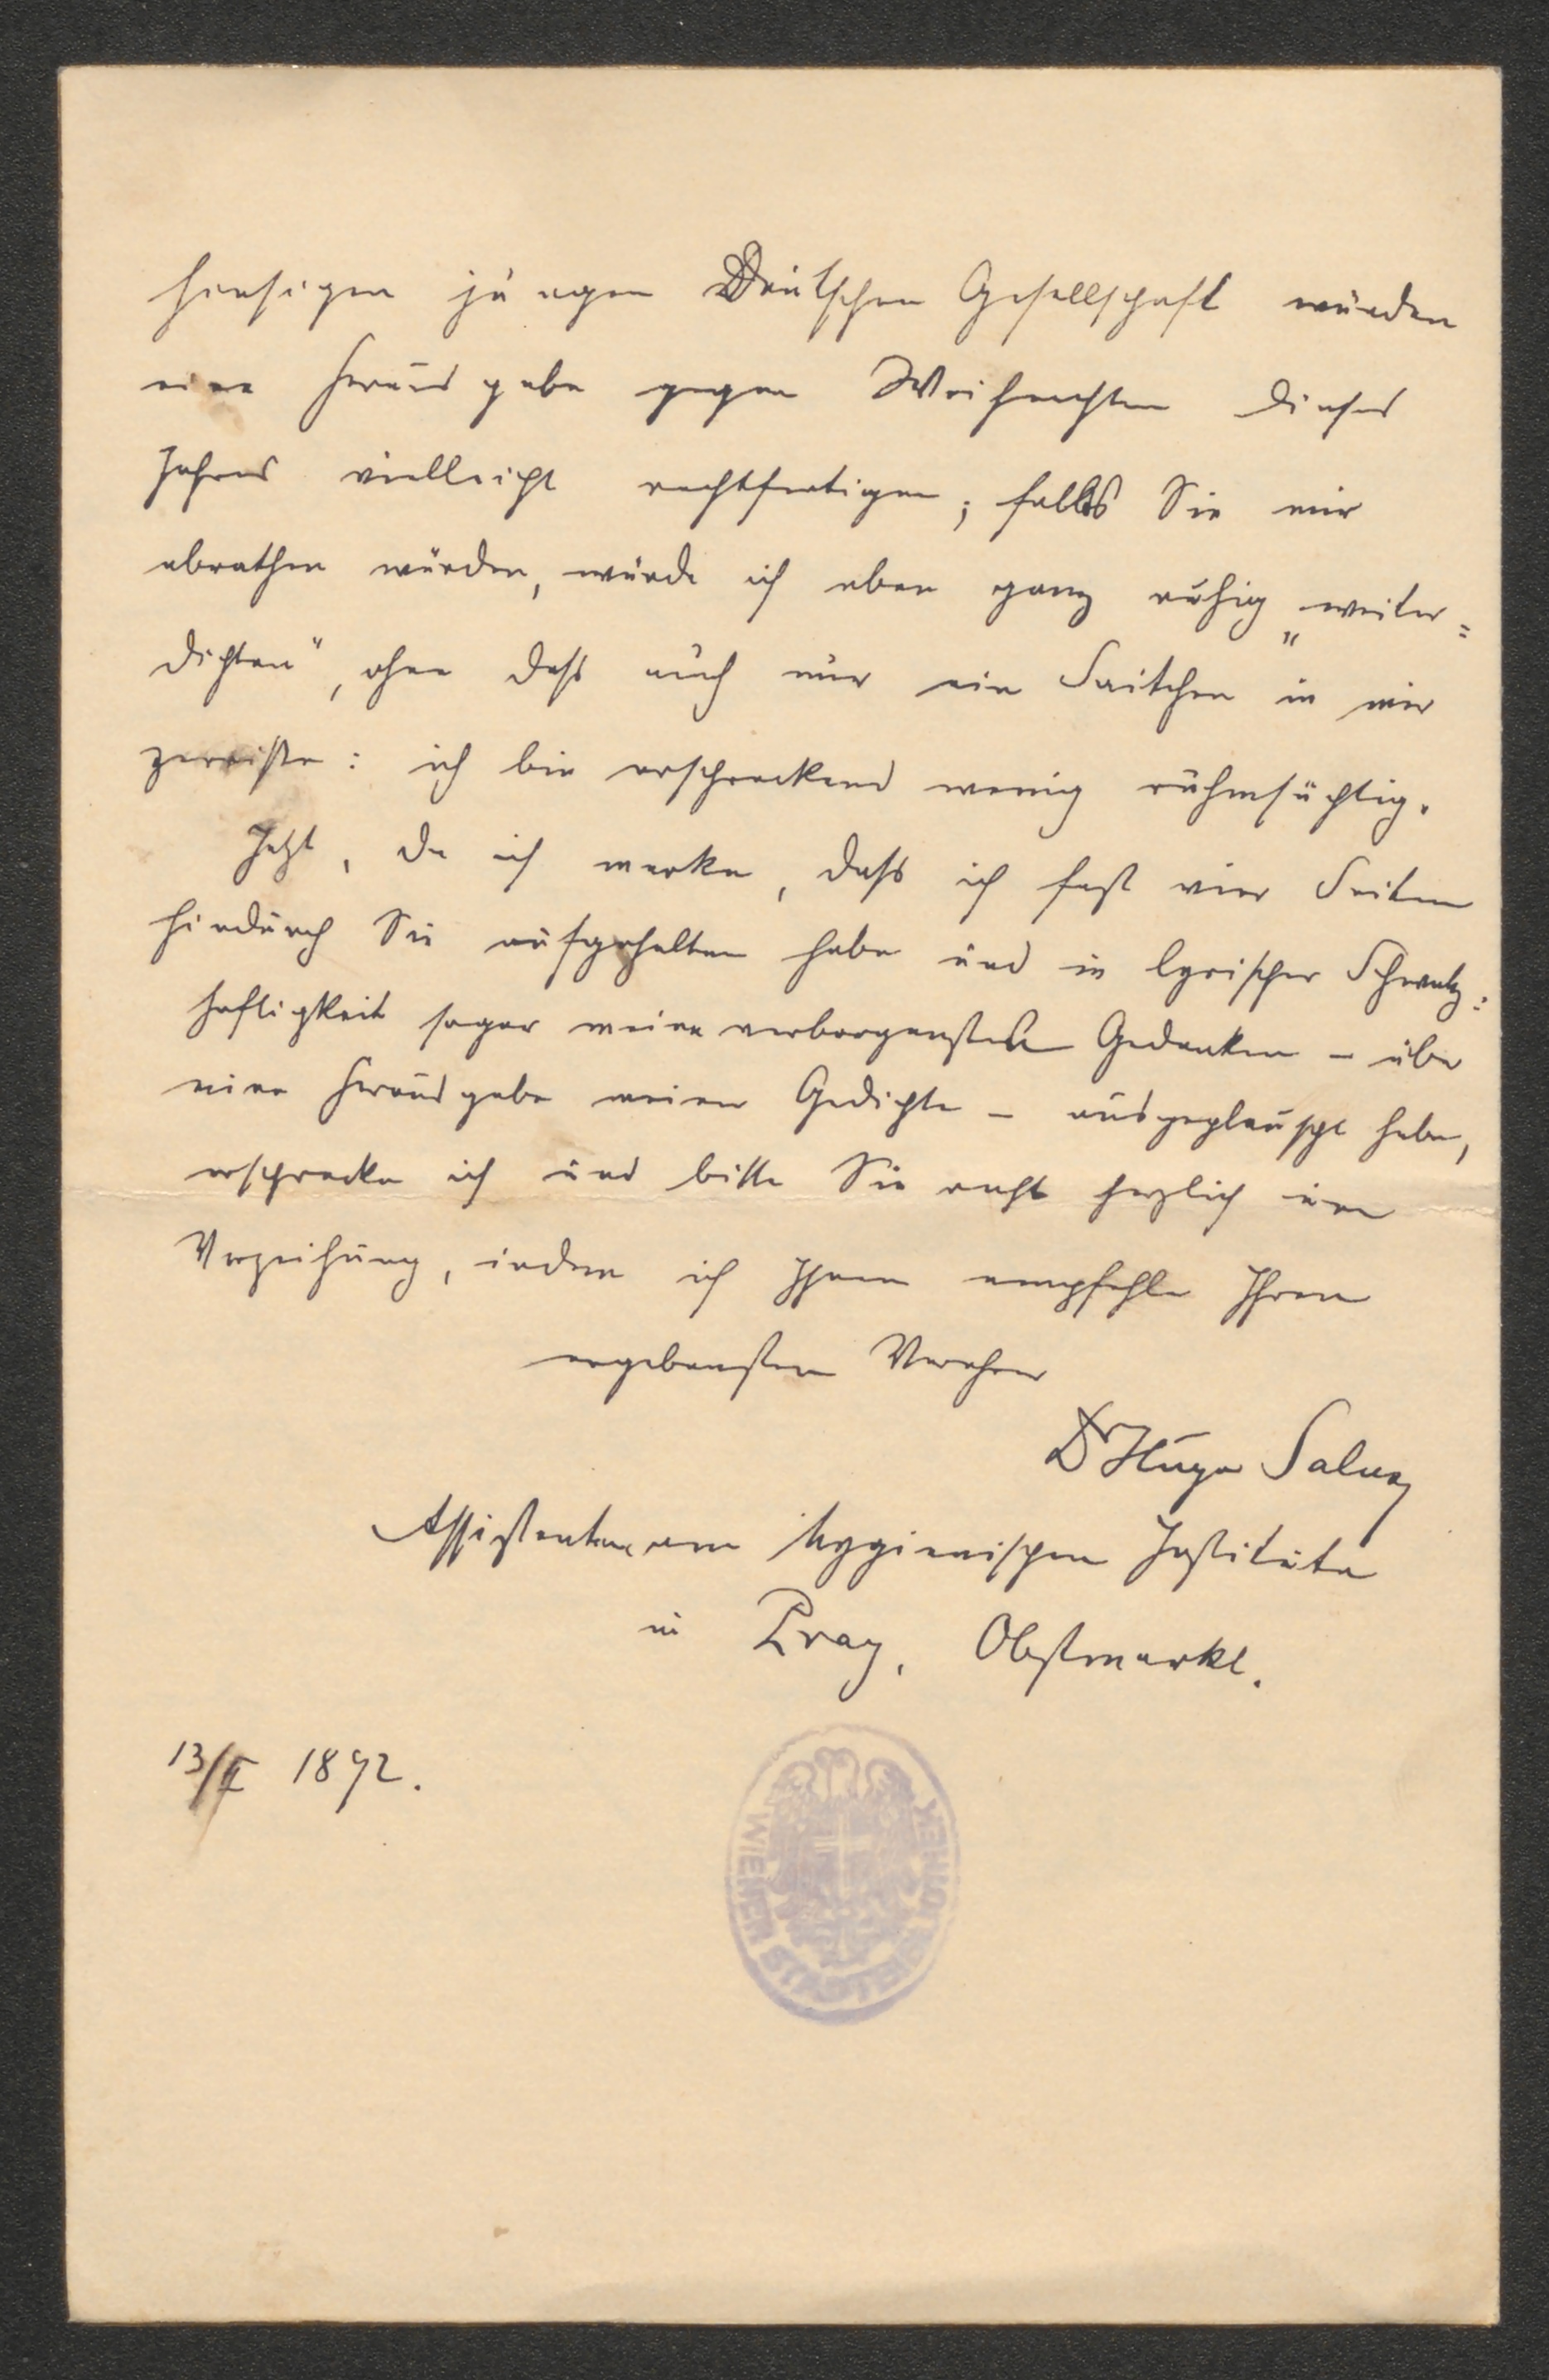 hiesigen jungen Deutschen Gesellschaft würden
eine Herausgabe gegen Weihnachten dieses
Jahres vielleicht rechtfertigen; falls Sie mir
abrathen würden, würde ich eben ganz ruhig „weiter=
dichten“, ohne dass auch nur ein Saitchen in mir
zerrisse: ich bin erschreckend wenig ruhmsüchtig.
Jetzt, da ich merke, dass ich fast vier Seiten
hindurch Sie aufgehalten habe und in lyrischer Schwatz=
haftigkeit sogar meine verborgensten Gedanken – über
eine Herausgabe meiner Gedichte – ausgeplauscht habe,
erschrecke ich und bitte Sie recht herzlich um
Verzeihung, indem ich Ihnen empfehle Ihren
ergebensten Verehrer
Dr Hugo Salus
Assistenten am hygienischen Institute
in Prag, Obstmarkt.
13/ 1892.
WIENER STADTBIBLIOTHEK